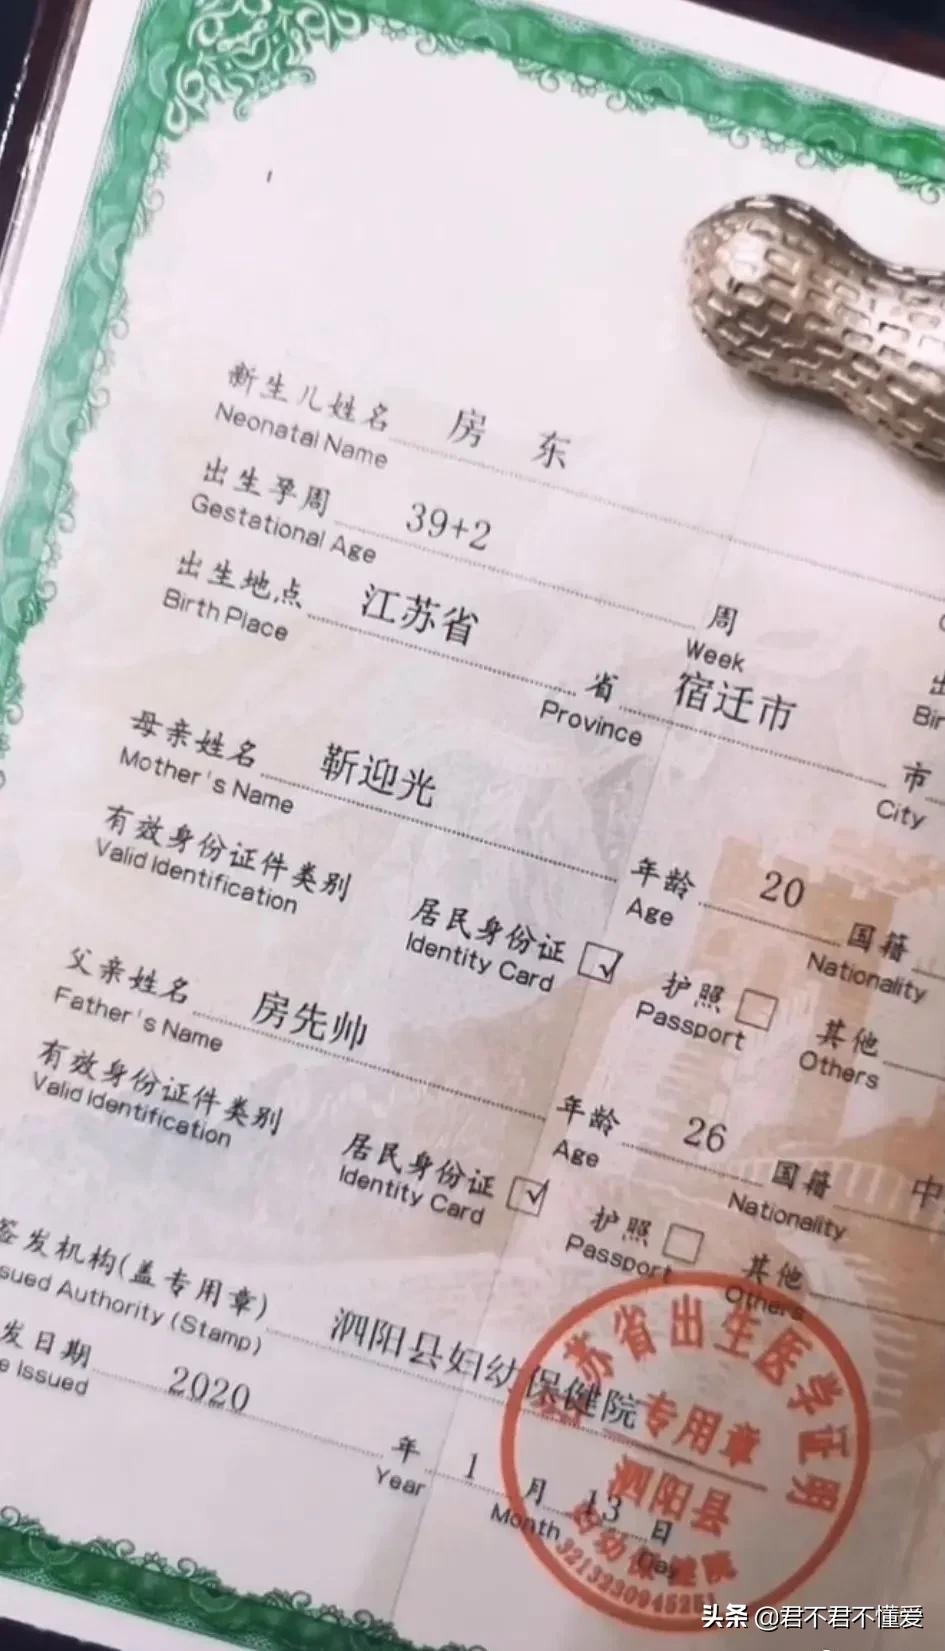 新生儿姓名 房 东
Neonatal Name
出生孕周 39+2 周
Gestational Age Week
出生地点 江苏省 省 宿迁市 市
Birth Place Province City
母亲姓名 靳迎光 年龄 20 国籍
Mother's Name Age Nationality
有效身份证件类别 居民身份证 ☑ 护照 □ 其他
Valid Identification Identity Card Passport Others
父亲姓名 房先帅 年龄 26 国籍 中
Father's Name Age Nationality
有效身份证件类别 居民身份证 ☑ 护照 □ 其他
Valid Identification Identity Card Passport Others
签发机构(盖专用章) 泗阳县妇幼保健院
sued Authority (Stamp)
发日期 2020 年 1 月 13 日
e Issued Year Month Day
苏省出生医学证明
专用章
泗阳县
幼保健院
头条 @君不君不懂爱